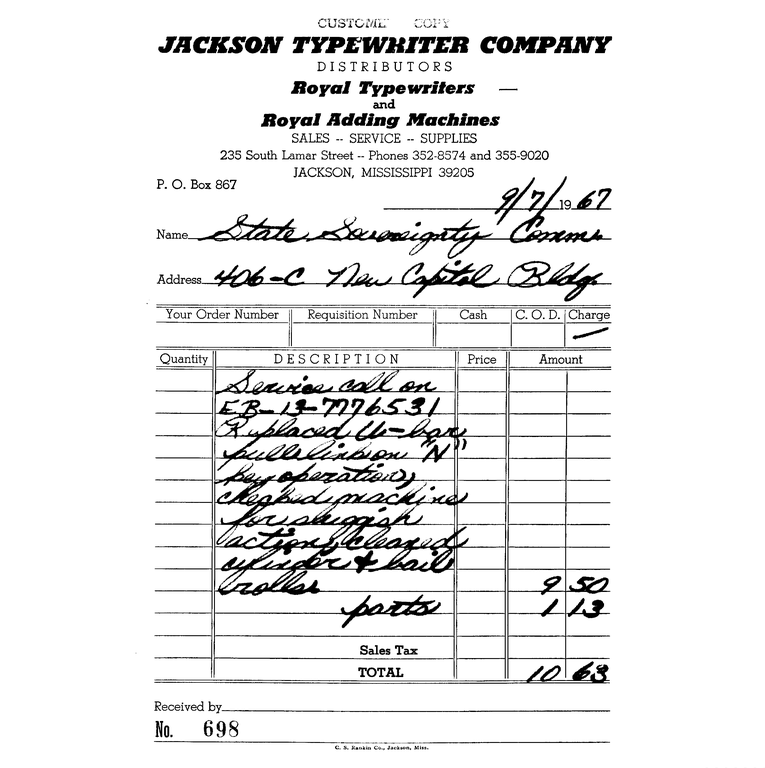 CUSTOMER COPY
JACKSON TYPEWRITER COMPANY
DISTRIBUTORS
Royal Typewriters —
and
Royal Adding Machines
SALES -- SERVICE -- SUPPLIES
235 South Lamar Street -- Phones 352-8574 and 355-9020
JACKSON, MISSISSIPPI 39205
P. O. Box 867
9/7/ 1967
Name State Sovereignty Comm.
Address 406-C New Capitol Bldg.
Your Order Number Requisition Number Cash C. O. D. Charge
Quantity DESCRIPTION Price Amount
Service call on
EB-13-7776531
Replaced U-bar
pull link on "N"
key operation,
checked machine
for sluggish
action, cleaned
cylinder & bail
rolls 9 50
parts 1 13
Sales Tax
TOTAL 10 63
Received by
No. 698
C. S. Rankin Co., Jackson, Miss.